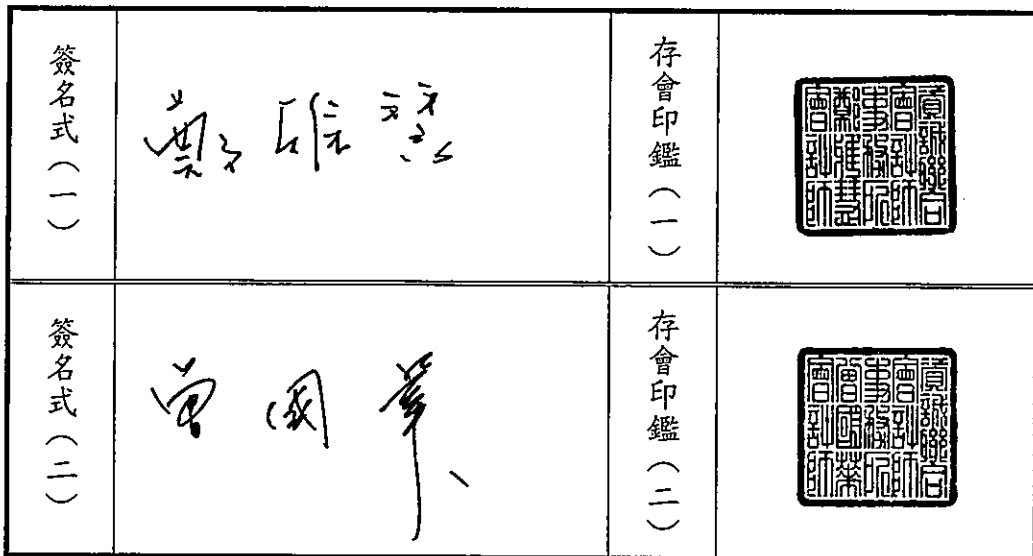 簽名式(一)
鄭雅慧
存會印鑑(一)
資誠聯合
會計師
事務所
鄭雅慧
會計師
簽名式(二)
曾國華
存會印鑑(二)
資誠聯合
會計師
事務所
曾國華
會計師